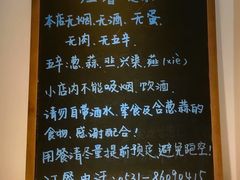 本店无烟、无酒、无蛋、
无肉、无五辛、
五辛:葱、蒜、韭、兴渠、薤(xiè)
小店内不能吸烟、饮酒、
请勿自带酒水、荤食及含葱蒜的
食物,感谢配合!
用餐请尽量提前预定,避免跑空!
订餐电话:0531-86090415